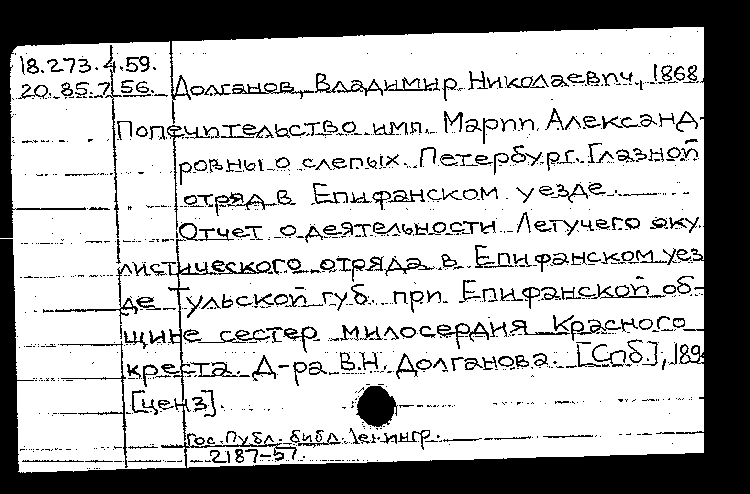 18.273.4.59.
20.85.7.56. Долганов, Владимир Николаевич, 1868
Попечительство имп. Марии Александ-
ровны о слепых. Петербург. Глазной
отряд в Епифанском уезде.
Отчет о деятельности Летучего оку
листического отряда в Епифанском уез
де Тульской губ. при Епифанской об-
щине сестер милосердия Красного
креста. Д-ра В.Н. Долганова. [Спб],
[ценз].
Гос. Публ. библ. Ленингр.
2187-57.